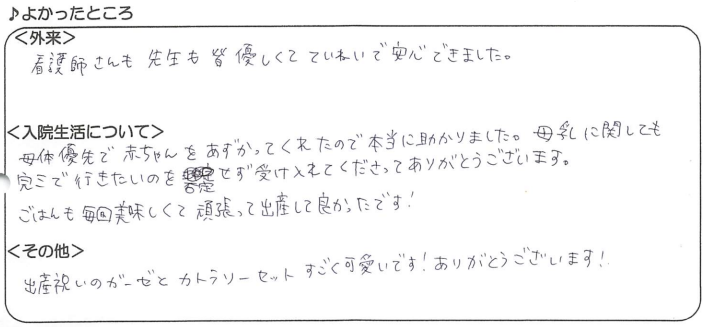 ♪よかったところ
＜外来＞
看護師さんも 先生も 皆 優しくて ていねいで 安心できました。
＜入院生活について＞
母体優先で 赤ちゃんを あずかってくれたので 本当に助かりました。母乳に関しても
完ミで行きたいのを 否定せず受け入れてくださってありがとうございます。
ごはんも 毎回美味しくて 頑張って出産して良かったです!
＜その他＞
出産祝いのガーゼと カトラリーセット すごく可愛いです!ありがとうございます!